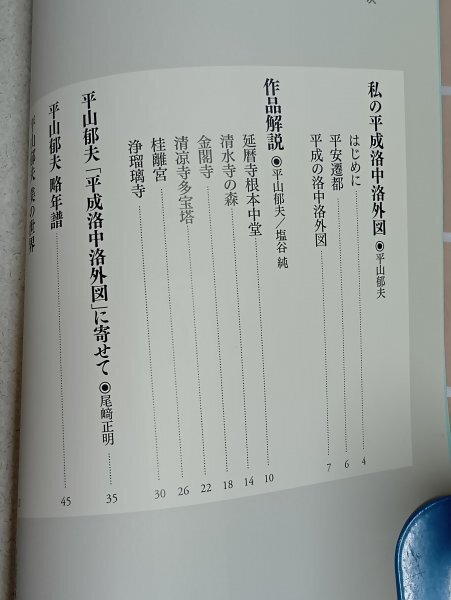 次
私の平成洛中洛外図 ◉平山郁夫
はじめに 4
平安遷都 6
平成の洛中洛外図 7
作品解説 ◉平山郁夫／塩谷 純 10
延暦寺根本中堂 14
清水寺の森 18
金閣寺 22
清凉寺多宝塔 26
桂離宮 30
浄瑠璃寺
平山郁夫「平成洛中洛外図」に寄せて ◉尾﨑正明 35
平山郁夫 略年譜 45
平山郁夫 美の世界